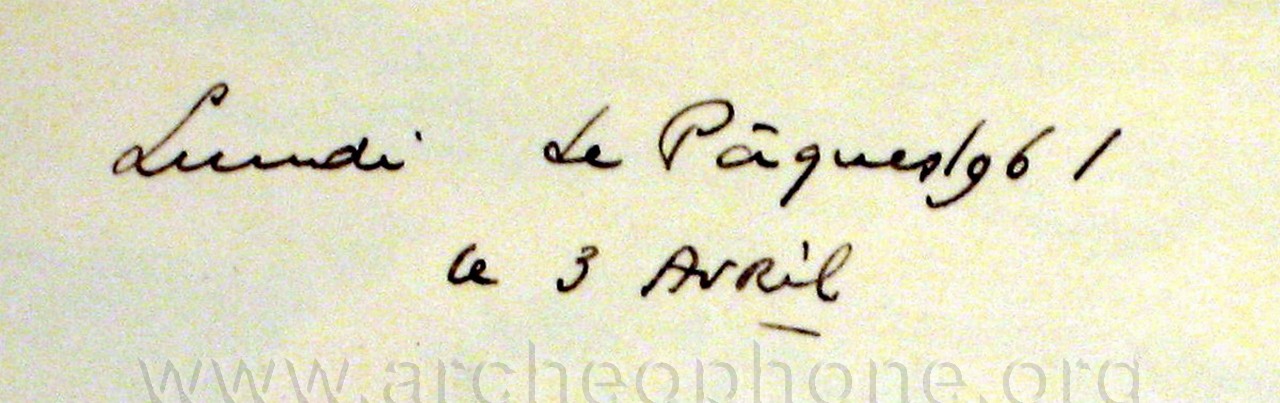 Lundi de Pâques 1961
le 3 Avril
www.archeophone.org